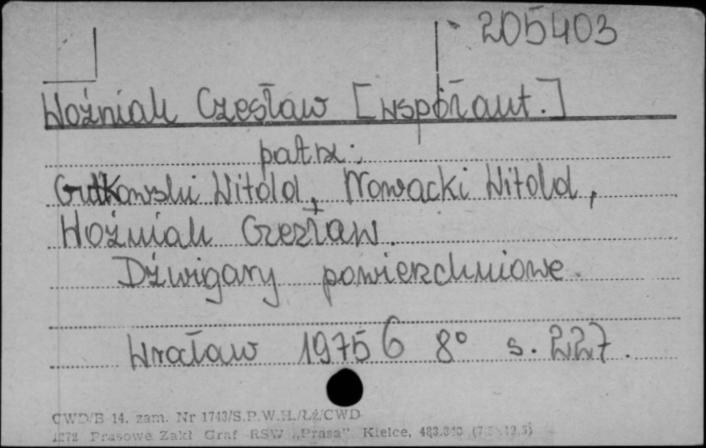 205403
Woźniak Czesław [współaut.]
patrz:
Gutkowski Witold, Nowacki Witold,
Woźniak Czesław.
Dźwigary powierzchniowe.
Wrocław 1975 6 8° s. 227.
CWD/B 14. zam. Nr 1743/S.P.W.H./ŁŻ/CWD
Prasowe Zakł Graf RSW „Prasa" Kielce,